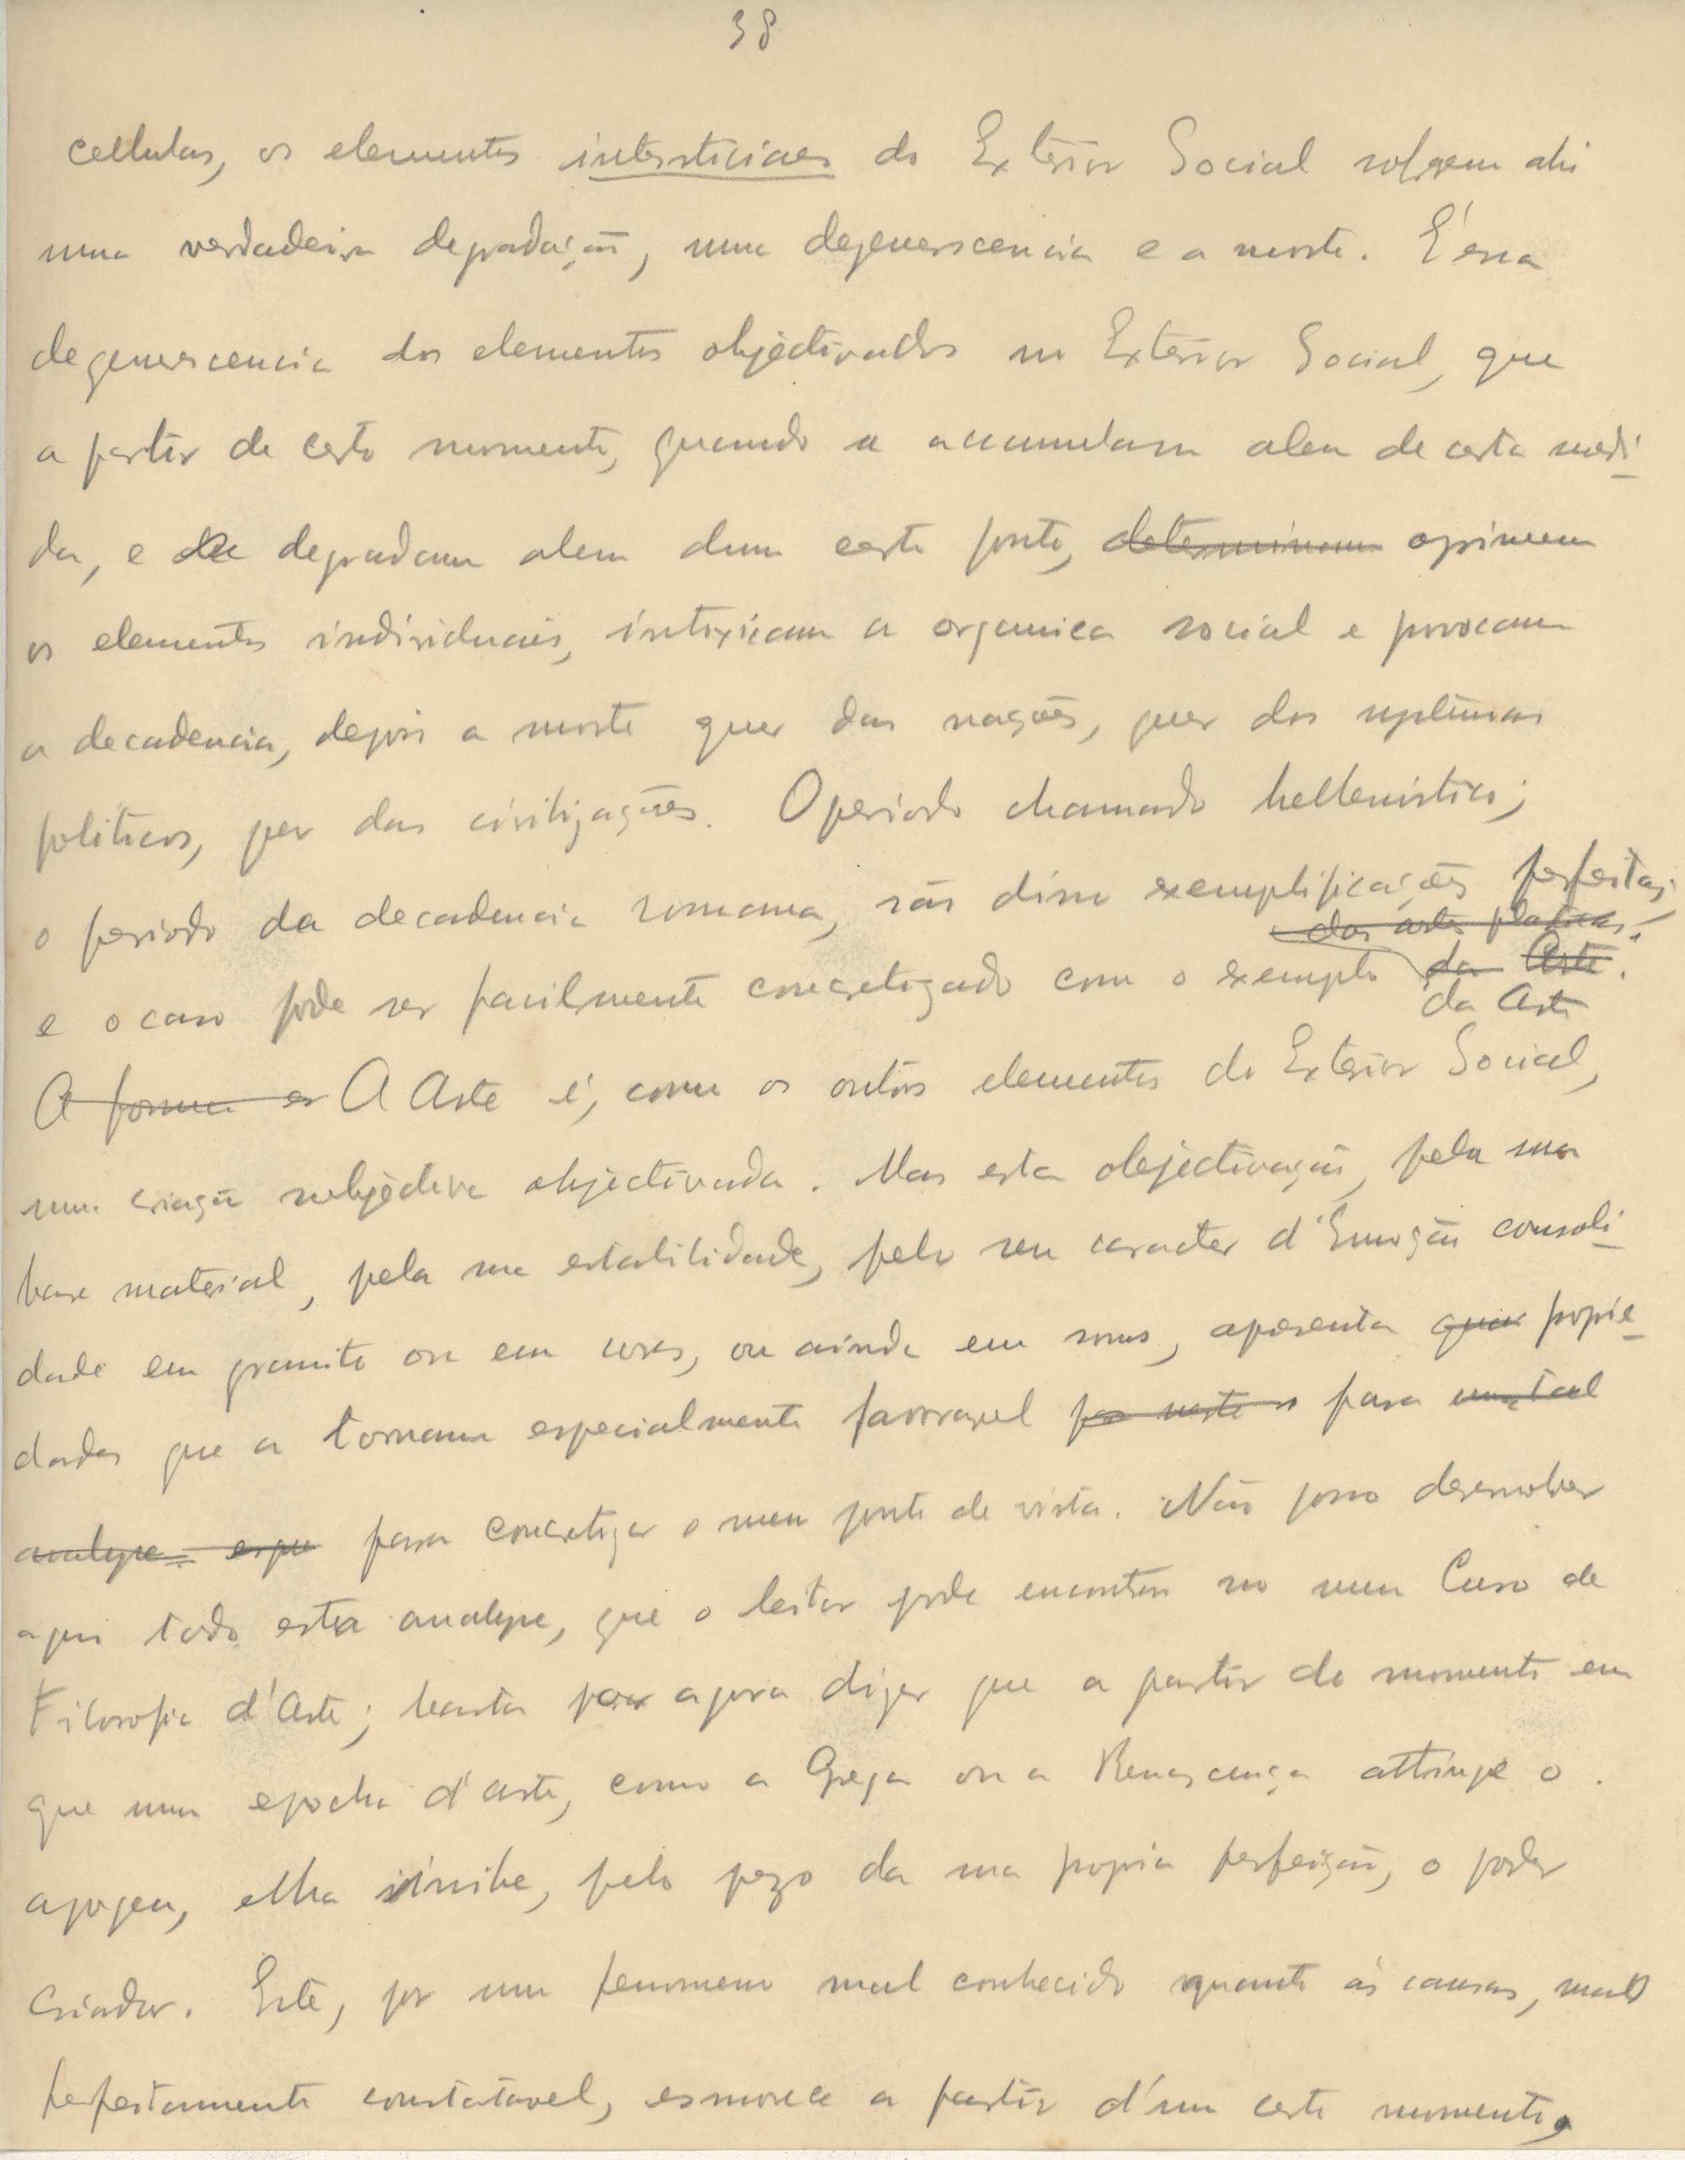 38
cellulas, os elementos intersticiaes do Exterior Social sofrem ahi
uma verdadeira degradação, uma degenerscencia e a morte. É essa
degenerscencia dos elementos objectivados no Exterior Social, que
a partir de certo momento, quando se accumulam alem de certa medi-
da, e se degradam alem dum certo ponto, determinam oprimem
os elementos individuais, intoxicam a organica social e provocam
a decadencia, depois a morte quer das nações, quer dos systemas
politicos, quer das civilizações. O periodo chamado hellenistico;
o periodo da decadencia romana, são disso exemplificações perfeitas;
das artes plasticas.
e o caso pode ser facilmente concretizado com o exemplo da Arte.
da Arte
A forma es A Arte é, como os outros elementos do Exterior Social,
uma criação subjectiva objectivada. Mas esta objectivação, pela sua
base material, pela sua estabilidade, pelo seu caracter d'Emoção consoli-
dada em granito ou em cores, ou ainda em sons, apresenta quer proprie-
dades que a tornam especialmente favoravel para
analyse para concretizar o meu ponto de vista. Não posso desenvolver
aqui toda esta analyse, que o leitor pode encontrar no meu Curso de
Filosofia d'Arte; basta por agora dizer que a partir do momento em
que uma epocha d'arte, como a Grega ou a Renascença attinge o
apogeu, ella inibe, pelo pezo da sua propria perfeição, o poder
criador. Este, por um fenomeno mal conhecido quanto ás causas, mas
perfeitamente constatavel, esmorece a partir d'um certo momento,